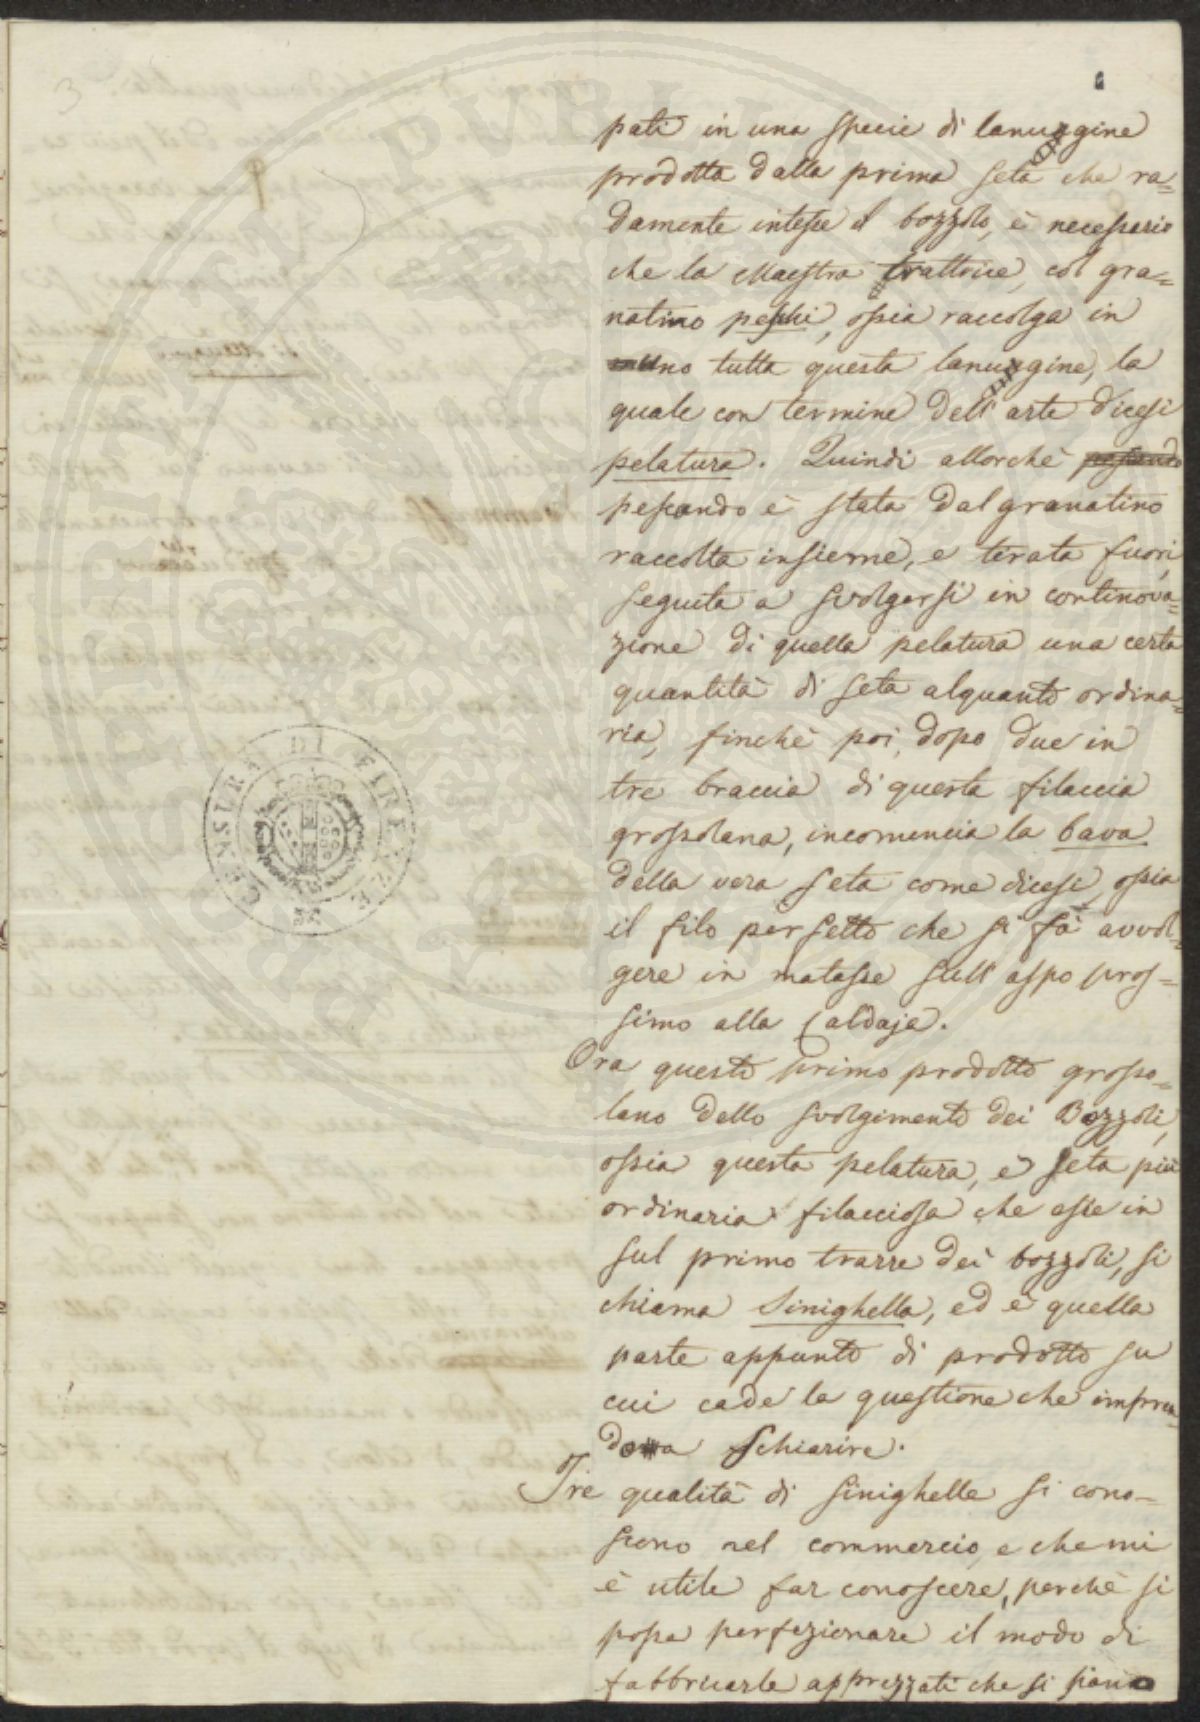 3
pati in una specie di lanuggine
prodotta dalla prima seta che ra=
damente intesse il bozzolo, è necessario
che la Maestra trattrice, col gra=
natino peschi, ossia raccolga in
uno tutta questa lanuggine, la
quale con termine dell'arte dicesi
pelatura. Quindi allorchè pescando
pescando è stata dal granatino
raccolta insieme, e tirata fuori,
seguita a svolgersi in continova=
zione di quella pelatura una certa
quantità di seta alquanto ordina=
ria, finchè poi, dopo due in
tre braccia di questa filaccia
grossolana, incomincia la bava
della vera seta come dicesi, ossia
il filo perfetto che si fà avvol=
gere in matasse sull'aspo pros=
simo alla Caldaja.
Ora questo primo prodotto grosso=
lano dello svolgimento dei Bozzoli,
ossia questa pelatura, e seta più
ordinaria filacciosa che esce in
sul primo trarre dei bozzoli, si
chiama Sinighella, ed è quella
parte appunto di prodotto su
cui cade la questione che impren=
do a schiarire.
Tre qualità di sinighelle si cono=
scono nel commercio, e che mi
è utile far conoscere, perchè si
possa perfezionare il modo di
fabbricarle apprezzati che si siano
CENSURA DI FIRENZE